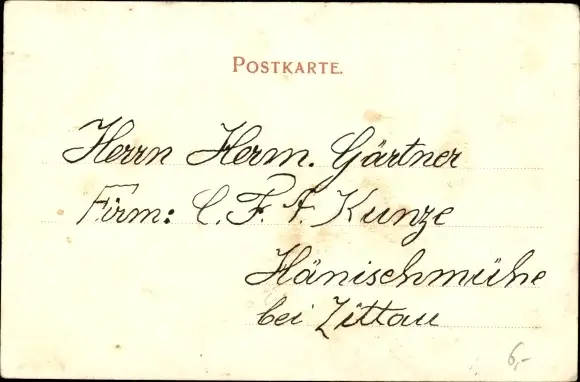 POSTKARTE.
Herrn Herm. Gärtner
Firm: C. F. A. Kunze
Hänischmühe
bei Zittau
6,-